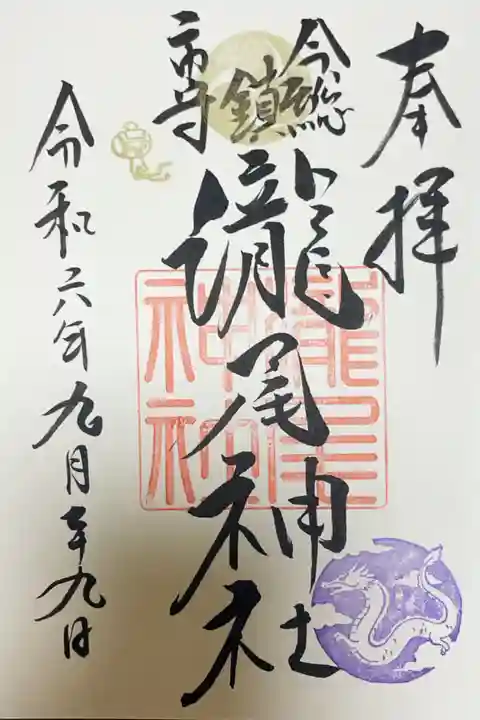 奉拝
今市総鎮守
瀧尾神社
瀧尾神社
令和六年九月二十九日